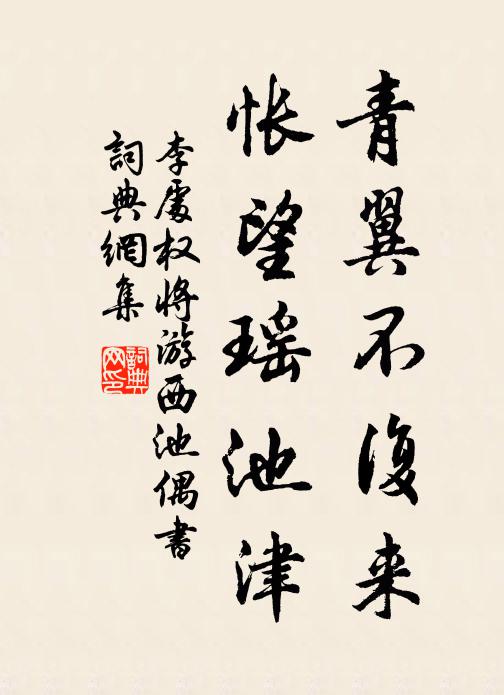 青翼不復来
悵望瑶池津
李處权将游西池偶書
詞典網集
詞典網印